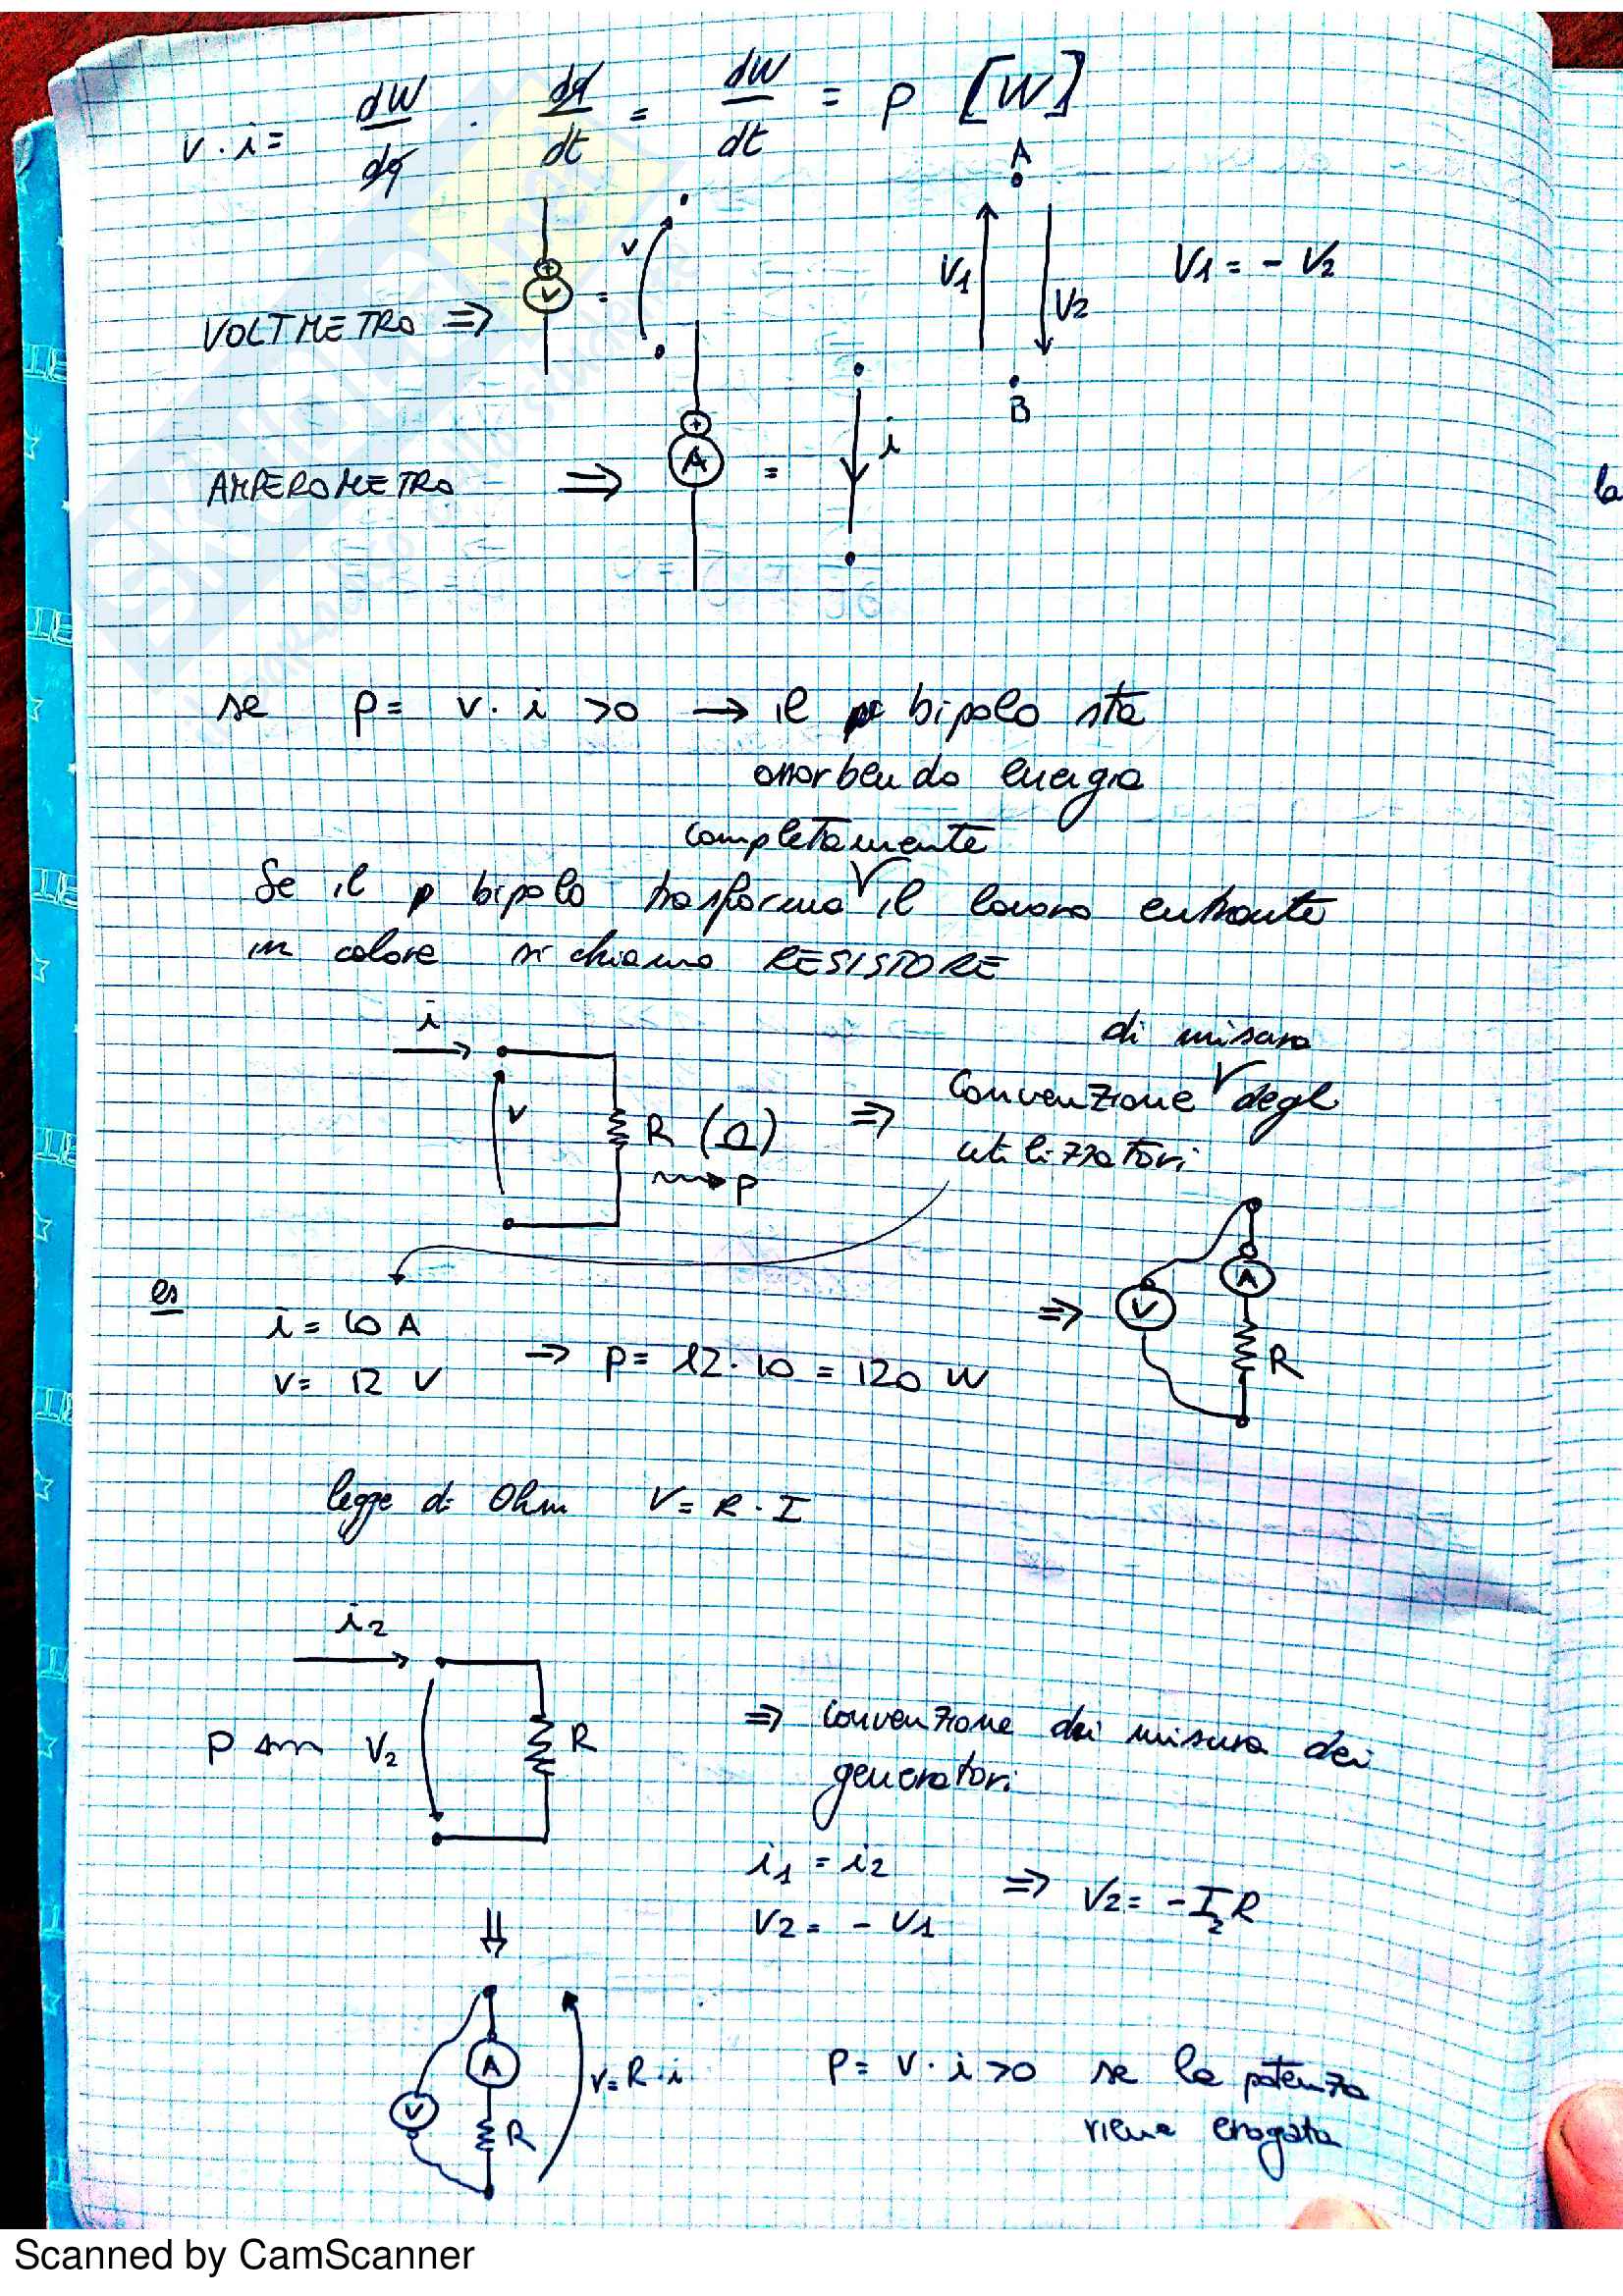 v · i = dW/dq · dq/dt = dW/dt = p [W]
A
v
V1
V2
V1 = - V2
VOLTMETRO ⇒ + V =
B
AMPEROMETRO ⇒ + A = i
la
se p = v · i >0 → il bipolo sta
assorbendo energia
completamente
Se il bipolo trasforma il lavoro entrante
in calore si chiama RESISTORE
i
di misura
v
R (Ω) ⇒ Convenzione degli
p
utilizzatori
es
i = 10 A
v = 12 V → p = 12 · 10 = 120 W
⇒ V A R
legge di Ohm V = R · I
i2
p V2 R
⇒ convenzione di misura dei
generatori
i1 = i2
V2 = - V1 ⇒ V2 = -I2R
⇓
A
V R v = R · i
P = v · i >0 se la potenza
viene erogata
Scanned by CamScanner